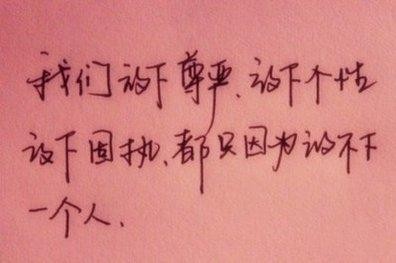 我们放下尊严、放下个性
放下固执、都只因为放不下
一个人.